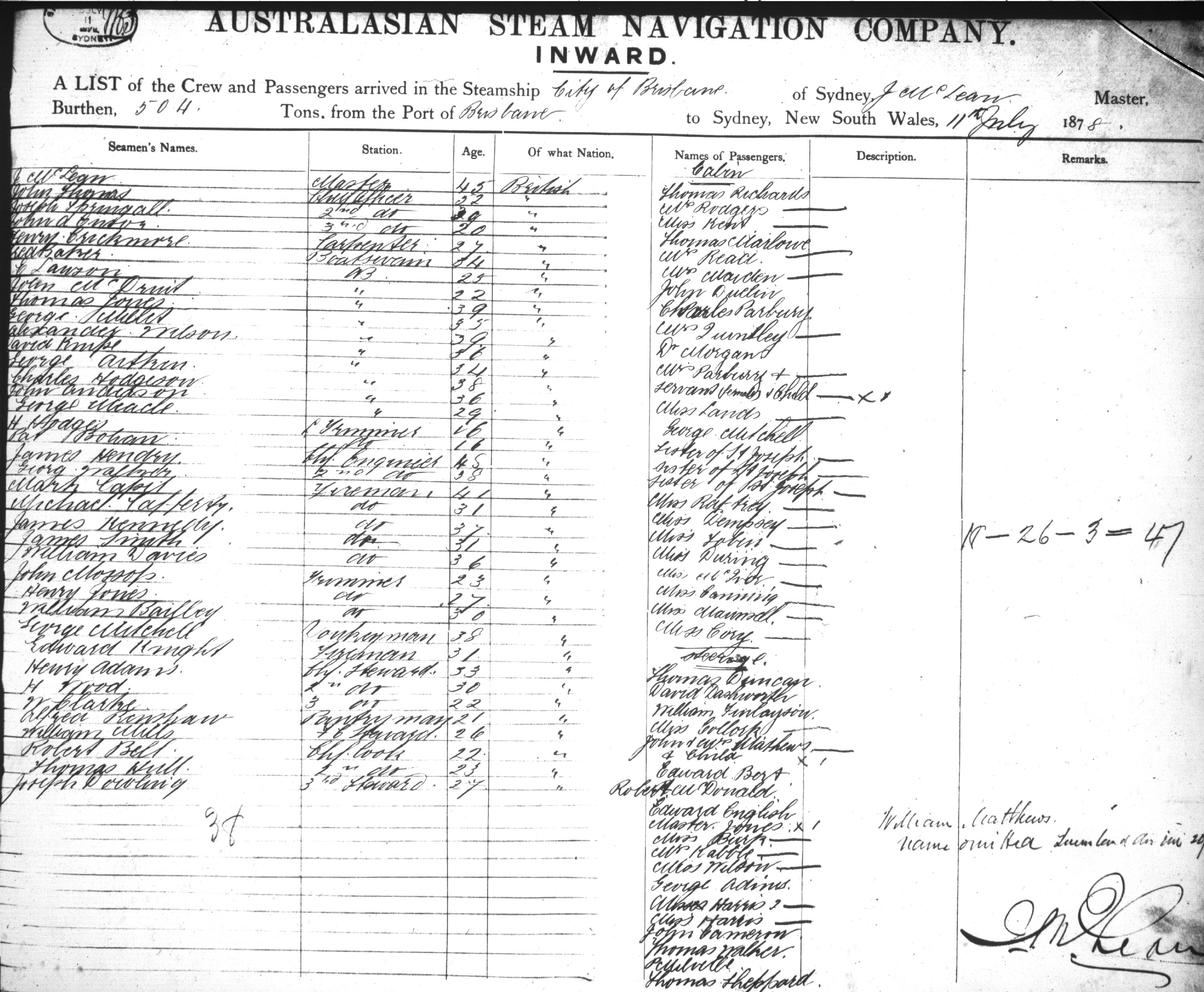 11
SYDNEY
AUSTRALASIAN STEAM NAVIGATION COMPANY.
INWARD.
A LIST of the Crew and Passengers arrived in the Steamship City of Brisbane of Sydney, J McLean Master,
Burthen, 504. Tons, from the Port of Brisbane to Sydney, New South Wales, 11th July 1878.
Seamen's Names. Station. Age. Of what Nation. Names of Passengers. Description. Remarks.
Cabin
McLean Master 45 British Thomas Richards
John Thomas Chf Officer 32 " Mrs Rodgers
Joseph 2nd do 29 " Miss Kent
John A 3rd do 20 " Thomas Marlowe
Henry Crickmore. Carpenter 27 " Mrs Read.
Baker. Boatswain 34 " Mrs Maiden
Lawson AB 25 " John
John McDruit " 22 " Charles Parbury
Thomas Jones " 39 " Mrs Huntley
George " 35 " Dr Morgan
Alexander Wilson. " 39 " Mrs Parbury +
David " 36 " Servant female & Child x
George Aitkin. " 34 " Miss Lands
Charles Hodgeson " 38 " George Mitchell.
John Anderson " 36 " Sister of St Joseph
George Meade. " 29 " Sister of St Joseph
H Hodges Trimmer 16 " Sister of St Joseph
Pat Bohan. do 16 " Miss Raftrey.
James Hendry. Chf Engineer 45 " Miss Dempsey
2nd do 38 " Miss Tobin
Mark Fireman. 41 " Miss During
Michael Lafferty. do 31 " Miss
James Kennedy. do 37 " Miss Canning
James Smith do 31 " Miss Maunsell.
William Davies do 36 " Miss Cory.
John Mossop. Trimmer 23 " Steerage.
Henry Jones. do 27 " Thomas Duncan.
William Bailley do 30 " David Dashworth
George Mitchell Donkeyman 38 " William Finlayson.
Edward Knight Fireman 31 " Miss
Henry Adams. Chf. Steward. 33 " John & Mrs Mathews
H Wood. 2nd do 30 " & Child x 1
W Clarke 3 do 22 " Edward Bort
Alfred Lanshaw Pantryman 21 " Robert McDonald.
William Mills F C Steward. 26 " Edward English
Robert Bell. Chf. Cook 22 " Master Jones x 1
Thomas Hull. 2nd do 23 " Miss Burk
Joseph Dowling 3rd Steward. 27 " Mrs Rabbit
38
Miss Wilson
George Adims.
Misses Harris 2
Miss Harris
John Cameron
Thomas Walker.
P Melville
Thomas Sheppard.
18 - 26 - 3 = 47
William Matthews.
name omitted
J McLean